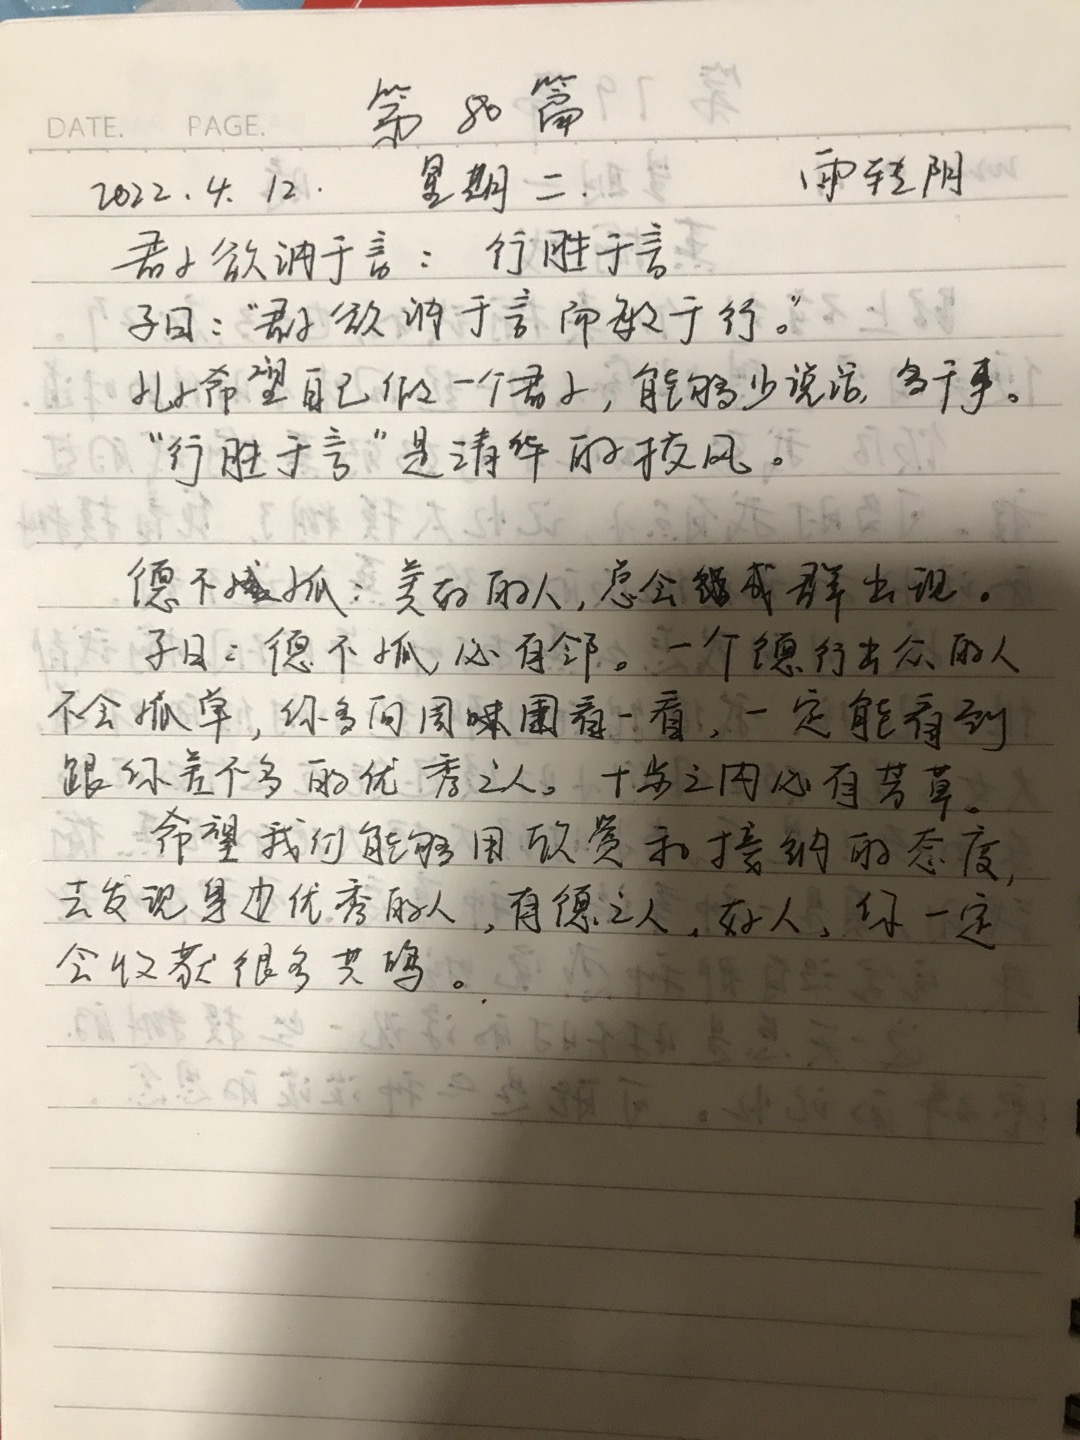 第80篇
DATE. PAGE.
2022.4.12. 星期二. 雨转阴
君子欲讷于言：行胜于言
子曰：“君子欲讷于言而敏于行。”
孔子希望自己做一个君子，能够少说话，多干事。
“行胜于言”是清华的校风。
德不孤：美好的人，总会成群出现。
子曰：德不孤必有邻。一个德行出众的人
不会孤单，你多向周围看一看，一定能看到
跟你差不多的优秀之人。十步之内必有芳草。
希望我们能够用欣赏和接纳的态度，
去发现身边优秀的人，有德之人，好人，你一定
会收获很多共鸣。